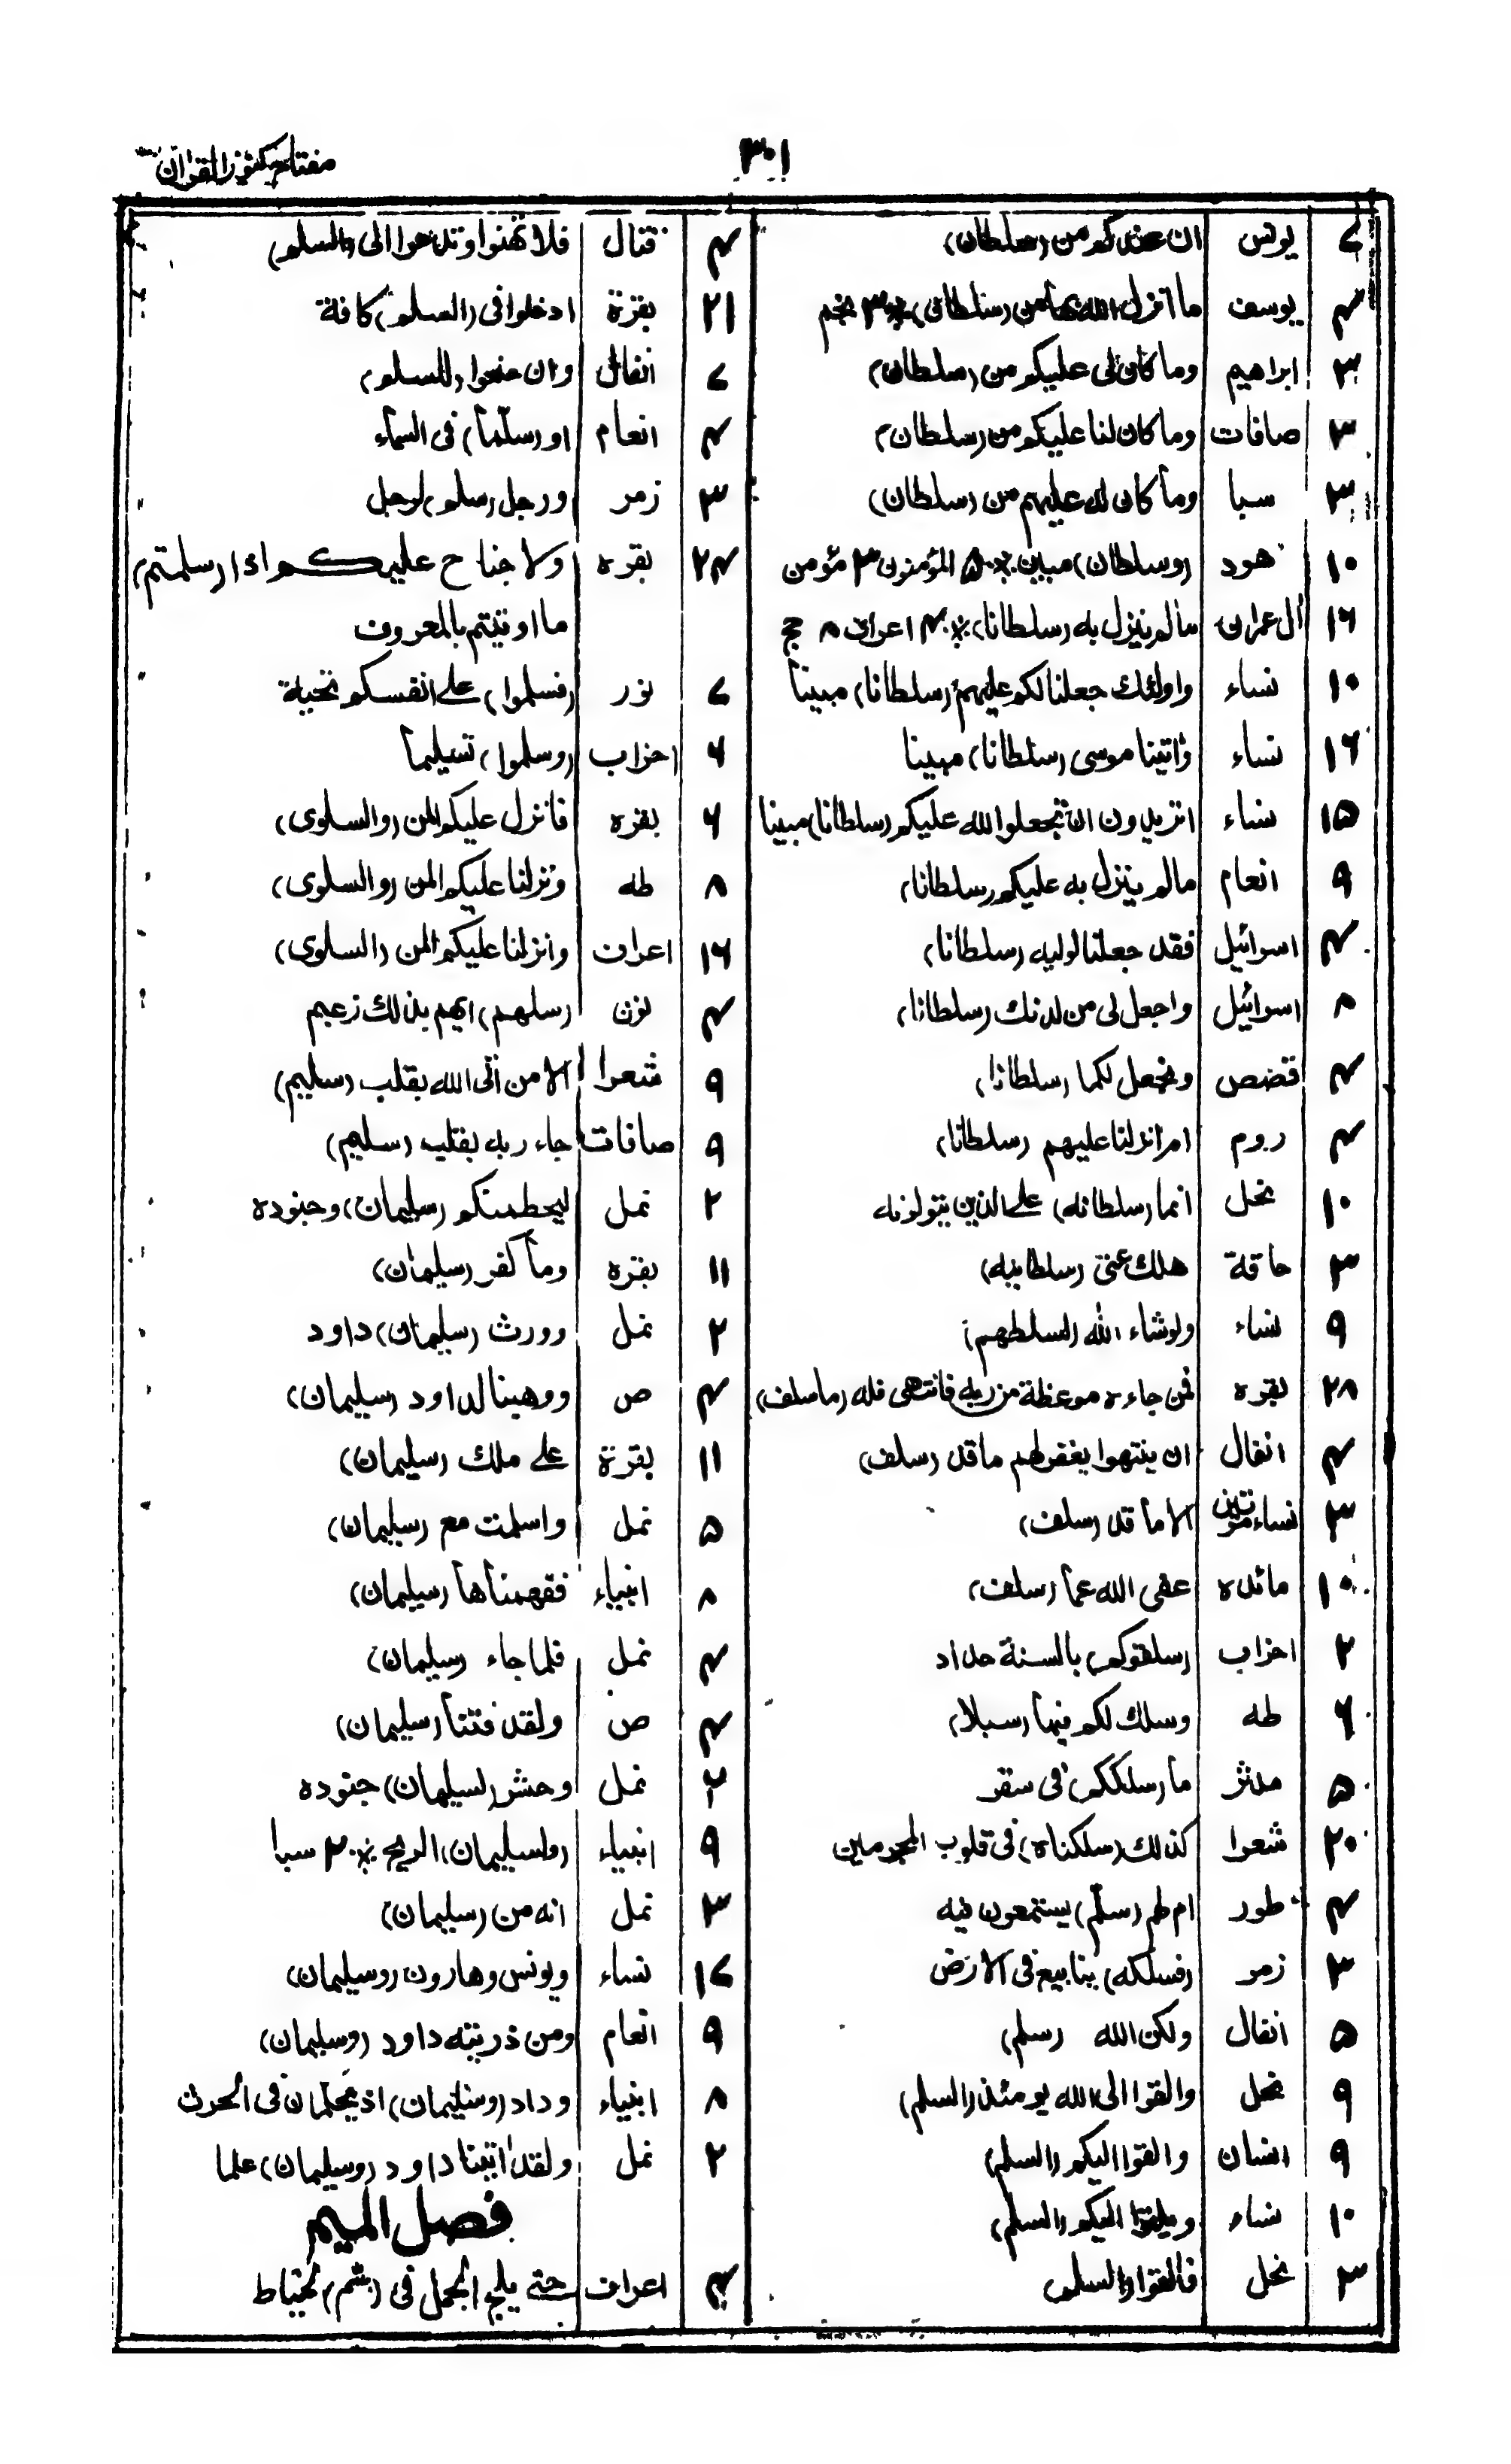 ٣٠١
مفتاح كنوز القرآن
٧ يونس ان عندكم من (سلطان)
۴ يوسف ما انزل الله بها من (سلطان) ٣ نجم
٣ ابراهيم وما كان لى عليكم من (سلطان)
٣ صافات وما كان لنا عليكم من (سلطان)
٣ سبا وما كان له عليهم من (سلطان)
١٠ هود (وسلطان) مبين ۵ المؤمنون ٣ مؤمن
١۶ آل عمران ما لم ينزل به (سلطانا) ۴ اعراف ٨ حج
١٠ نساء واولئك جعلنا لكم عليهم (سلطانا) مبينا
١۶ نساء وآتينا موسى (سلطانا) مبينا
١۵ نساء اتريدون ان تجعلوا لله عليكم (سلطانا) مبينا
٩ انعام مالم ينزل به عليكم (سلطانا)
۴ اسرائيل فقد جعلنا لوليه (سلطانا)
٨ اسرائيل واجعل لى من لدنك (سلطانا)
۴ قصص ونجعل لكما (سلطانا)
۴ روم ام انزلنا عليهم (سلطانا)
١٠ نحل انما (سلطانه) على الذين يتولونه
٣ حاقة هلك عنى (سلطانيه)
٩ نساء ولو شاء الله (لسلطهم)
٢٨ بقره فمن جاءه موعظة من ربه فانتهى فله (ما سلف)
۴ انفال ان ينتهوا يغفر لهم ما قد (سلف)
٣ نساء مرتين الا ما قد (سلف)
١٠ مائده عفى الله عما (سلف)
٢ احزاب (سلقوكم) بالسنة حداد
۶ طه وسلك لكم فيها (سبلا)
۵ مدثر ما (سلككم) فى سقر
٢٠ شعرا كذلك (سلكناه) فى قلوب المجرمين
۴ طور ام لهم (سلّم) يستمعون فيه
٣ زمر (فسلكه) ينابيع فى الارض
۵ انفال ولكن الله (سلم)
٩ نحل والقوا الى الله يومئذ (السلم)
٩ انسان والقوا اليكم (السلم)
١٠ نساء ويلقوا اليكم (السلم)
٣ نحل فالقوا (السلم)
۴ قتال فلا تهنوا وتدعوا الى (السلم)
٢١ بقرة ادخلوا فى (السلم) كافة
٧ انفال وان جنحوا (للسلم)
۴ انعام او (سلّما) فى السماء
٣ زمر ورجل (سلم) لرجل
٢۴ بقره ولا جناح عليكم اذا (سلمتم)
ما اوتيتم بالمعروف
٧ نور (فسلموا) على انفسكم تحية
۶ احزاب (وسلموا) تسليما
۶ بقره فانزل عليكم المن (والسلوى)
٨ طه ونزلنا عليكم المن (والسلوى)
١۶ اعراف وانزلنا عليكم المن (السلوى)
۴ نون (سلهم) ايهم بذلك زعيم
٩ شعرا الا من اتى الله بقلب (سليم)
٩ صافات جاء ربه بقلب (سليم)
٢ نمل ليحطمنكم (سليمان) وجنوده
١١ بقره وما كفر (سليمان)
٢ نمل وورث (سليمان) داود
۴ ص ووهبنا لداود (سليمان)
١١ بقرة على ملك (سليمان)
۵ نمل واسلمت مع (سليمان)
٨ انبياء ففهمناها (سليمان)
۴ نمل فلما جاء (سليمان)
۴ ص ولقد فتنا (سليمان)
٢ نمل وحشر (لسليمان) جنوده
٩ انبياء (ولسليمان) الريح ٢ سبا
٣ نمل انه من (سليمان)
١٧ نساء ويونس وهارون (وسليمان)
٩ انعام ومن ذريته داود (وسليمان)
٨ انبياء وداد (وسليمان) اذ يحكمان فى الحرث
٢ نمل ولقد اتينا داود (وسليمان) علما
فصل الميم
۴ اعراف حتى يلج الجمل فى (سم) الخياط